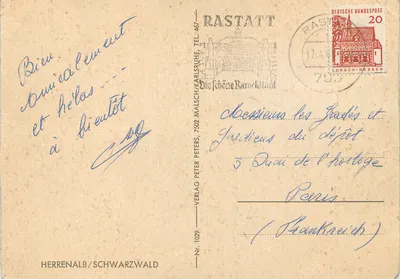 Bien
Amicalement
et hélas....
à bientôt
HERRENALB/SCHWARZWALD
Nr. 1029 — VERLAG PETER PETERS, 7502 MALSCH/KARLSRUHE, TEL. 467
RASTATT
Die schöne Barockstadt
RASTATT
DEUTSCHE BUNDESPOST
20
LORSCH/HESSEN
Messieurs les Gradés et
Gardiens du dépôt
3 Quai de l'horloge
Paris
(Frankreich)